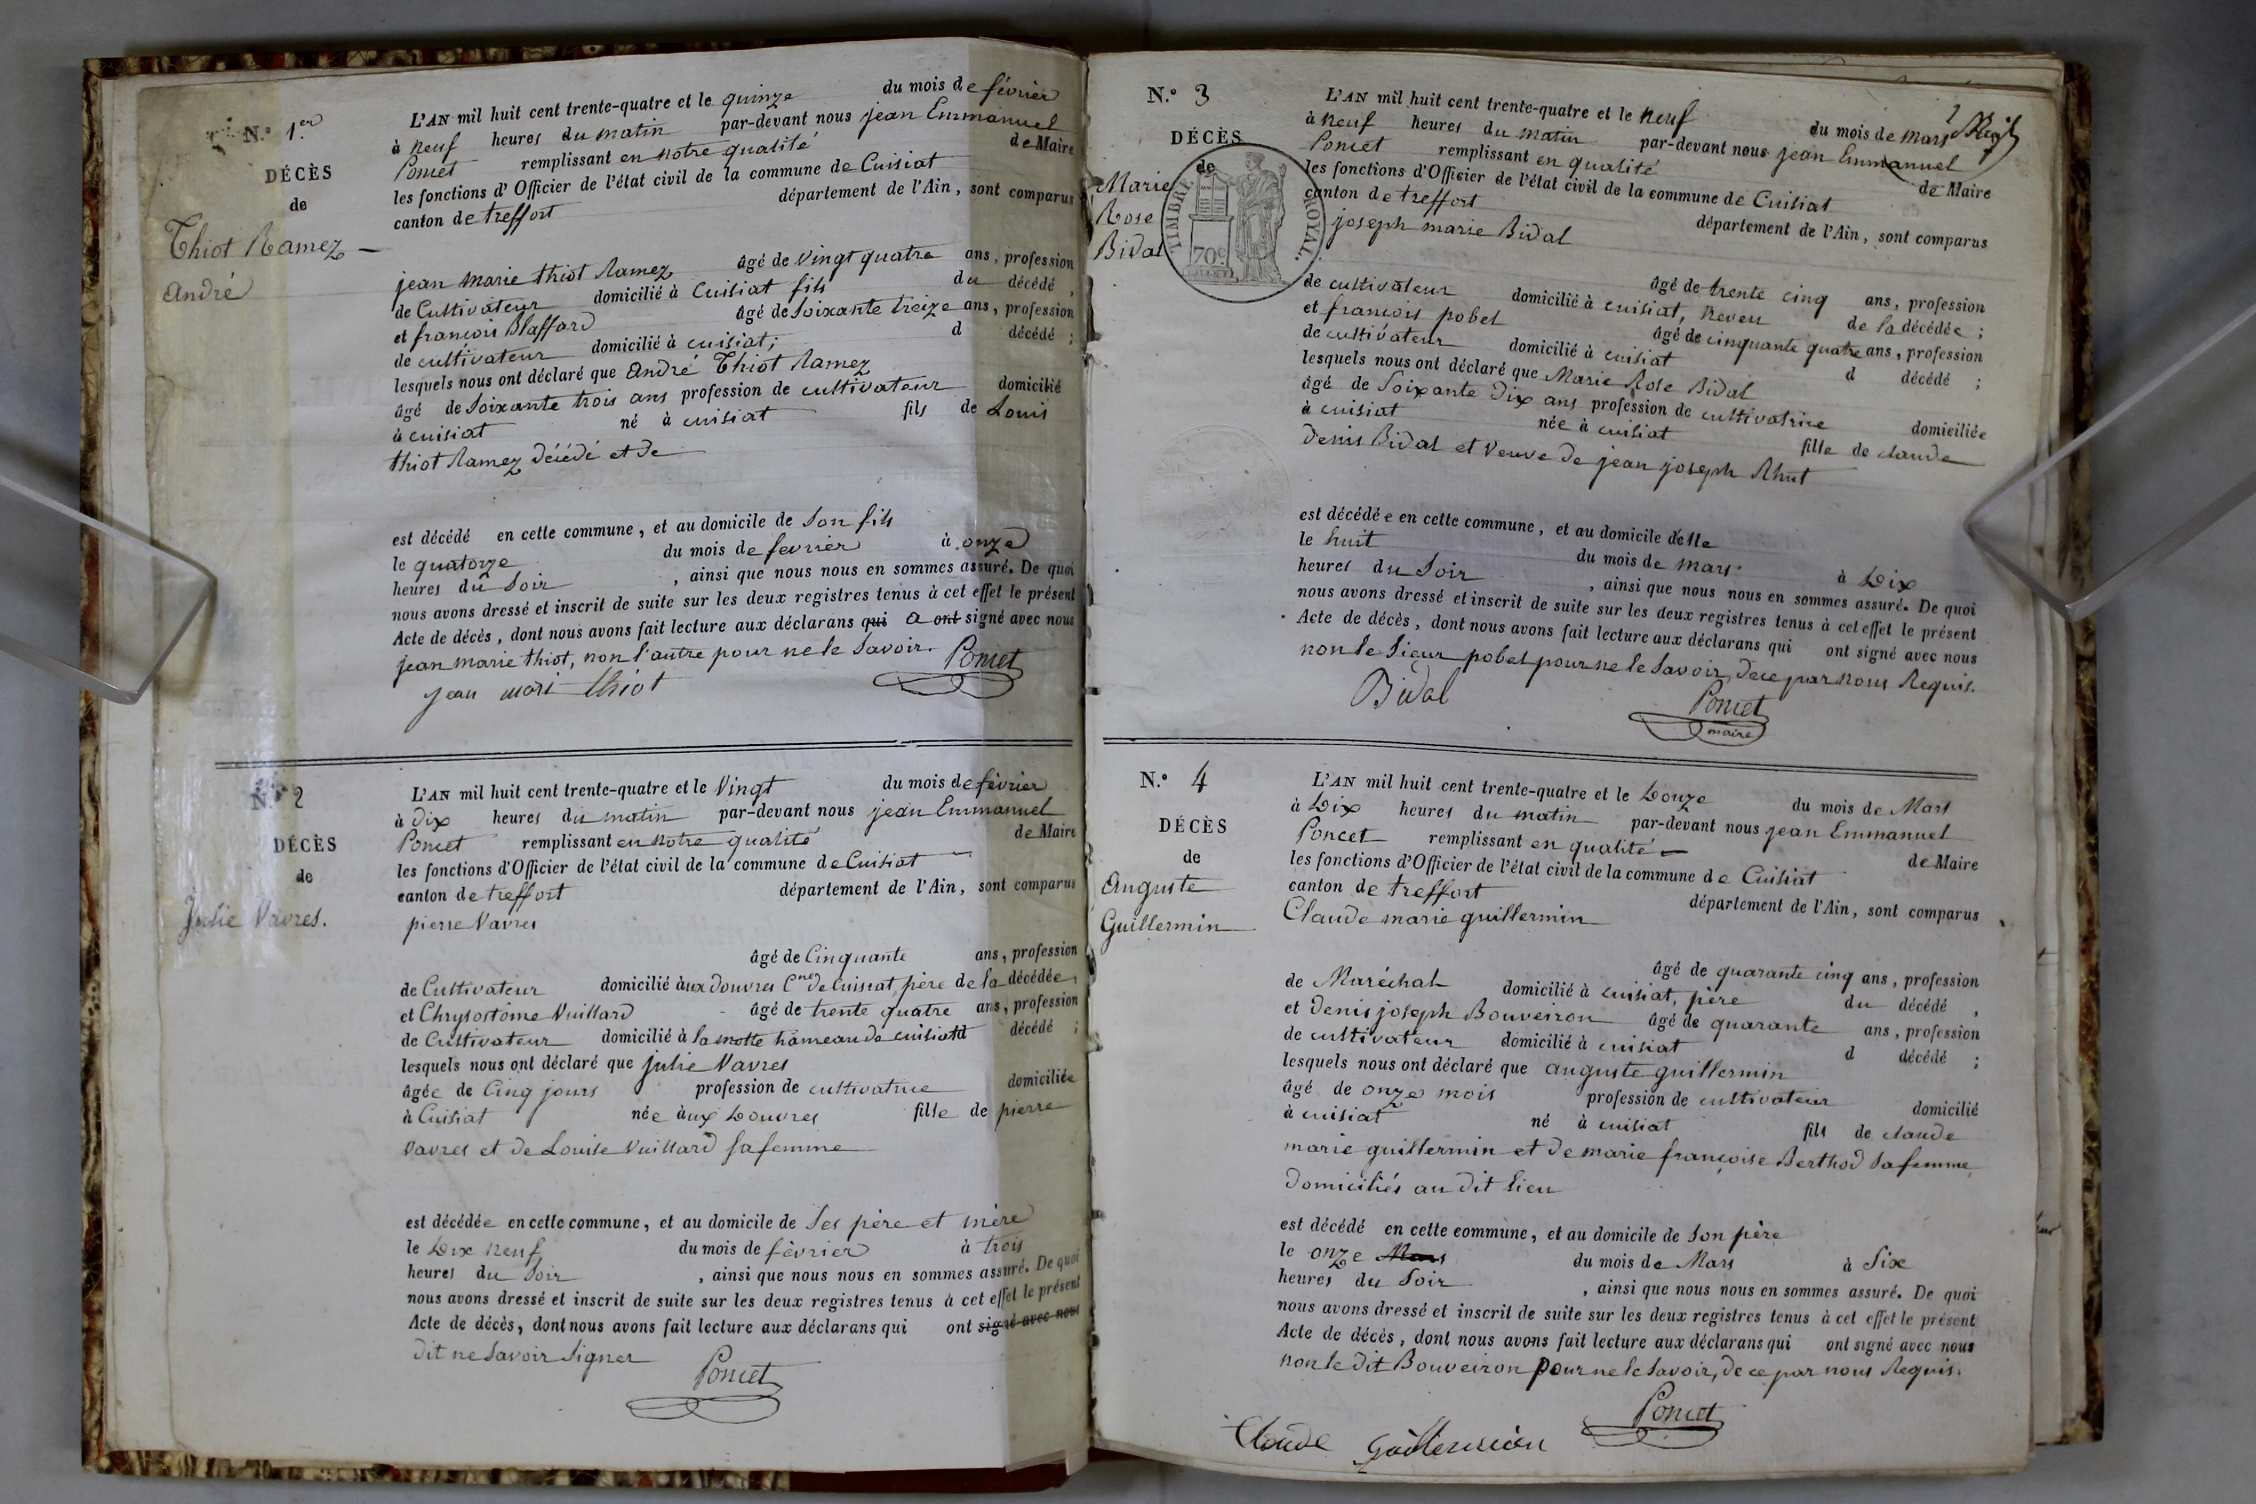 N.º 1.er
DÉCÈS
de
Thiot Ramez
André
L'AN mil huit cent trente-quatre et le quinze du mois de février
à neuf heures du matin par-devant nous jean Emmanuel
Poncet remplissant en notre qualité de Maire
les fonctions d'Officier de l'état civil de la commune de Cuisiat
canton de treffort département de l'Ain, sont comparus
jean marie thiot Ramez âgé de vingt quatre ans, profession
de Cultivateur domicilié à Cuisiat fils du décédé,
et francois Blaffard âgé de soixante treize ans, profession
de cultivateur domicilié à cuisiat; d décédé ;
lesquels nous ont déclaré que André Thiot Ramez
âgé de soixante trois ans profession de cultivateur domicilié
à cuisiat né à cuisiat fils de Louis
thiot Ramez décédé et de
est décédé en cette commune, et au domicile de son fils
le quatorze du mois de fevrier à onze
heures du soir , ainsi que nous nous en sommes assuré. De quoi
nous avons dressé et inscrit de suite sur les deux registres tenus à cet effet le présent
Acte de décès, dont nous avons fait lecture aux déclarans qui a ont signé avec nous
jean marie thiot, non l'autre pour ne le savoir. Poncet
jean mari thiot
N.º 2
DÉCÈS
de
Julie Vavres.
L'AN mil huit cent trente-quatre et le vingt du mois de février
à dix heures du matin par-devant nous jean Emmanuel
Poncet remplissant en notre qualité de Maire
les fonctions d'Officier de l'état civil de la commune de Cuisiat
canton de treffort département de l'Ain, sont comparus
pierre Vavres
âgé de Cinquante ans, profession
de Cultivateur domicilié à ux douvres Cne de Cuisiat, père de la décédée,
et Chrysostôme Vuillard âgé de trente quatre ans, profession
de Cultivateur domicilié à la motte hameau de cuisiat d décédé ;
lesquels nous ont déclaré que julie Vavres
âgée de Cinq jours profession de cultivatrice domiciliée
à Cuisiat née à ux Douvres fille de pierre
vavres et de Louise Vuillard sa femme
est décédée en cette commune, et au domicile de ses père et mère
le Dix neuf du mois de février à trois
heures du soir , ainsi que nous nous en sommes assuré. De quoi
nous avons dressé et inscrit de suite sur les deux registres tenus à cet effet le présent
Acte de décès, dont nous avons fait lecture aux déclarans qui ont signé avec nous
dit ne savoir signer Poncet
N.º 3
DÉCÈS
de
Marie
Rose
Bidal
TIMBRE ROYAL.
70c
L'AN mil huit cent trente-quatre et le neuf du mois de mars
à neuf heures du matin par-devant nous jean Emmanuel
Poncet remplissant en qualité de Maire
les fonctions d'Officier de l'état civil de la commune de Cuisiat
canton de treffort département de l'Ain, sont comparus
joseph marie Bidal
âgé de trente cinq ans, profession
de cultivateur domicilié à cuisiat, neveu de la décédée ;
et francois pobel âgé de cinquante quatre ans, profession
de cultivateur domicilié à cuisiat d décédé ;
lesquels nous ont déclaré que Marie Rose Bidal
âgé de soixante dix ans profession de cultivatrice domiciliée
à cuisiat née à cuisiat fille de claude
denis Bidal et veuve de jean joseph Rhut
est décédée en cette commune, et au domicile d'elle
le huit du mois de mars à Dix
heures du soir , ainsi que nous nous en sommes assuré. De quoi
nous avons dressé et inscrit de suite sur les deux registres tenus à cet effet le présent
Acte de décès, dont nous avons fait lecture aux déclarans qui ont signé avec nous
non le sieur pobel pour ne le savoir, de ce par nous Requis.
Bidal Poncet
maire
N.º 4
DÉCÈS
de
Auguste
Guillermin
L'AN mil huit cent trente-quatre et le Douze du mois de Mars
à Dix heures du matin par-devant nous jean Emmanuel
Poncet remplissant en qualité de Maire
les fonctions d'Officier de l'état civil de la commune de Cuisiat
canton de treffort département de l'Ain, sont comparus
Claude marie guillermin
âgé de quarante cinq ans, profession
de Maréchal domicilié à cuisiat, père du décédé,
et denis joseph Bouveiron âgé de quarante ans, profession
de cultivateur domicilié à cuisiat d décédé ;
lesquels nous ont déclaré que auguste guillermin
âgé de onze mois profession de cultivateur domicilié
à cuisiat né à cuisiat fils de claude
marie guillermin et de marie françoise Berthod sa femme
domiciliés au dit lieu
est décédé en cette commune, et au domicile de son père
le onze Mars du mois de Mars à Six
heures du soir , ainsi que nous nous en sommes assuré. De quoi
nous avons dressé et inscrit de suite sur les deux registres tenus à cet effet le présent
Acte de décès, dont nous avons fait lecture aux déclarans qui ont signé avec nous
non le dit Bouveiron pour ne le savoir, de ce par nous Requis.
Poncet
Claude Guillermin